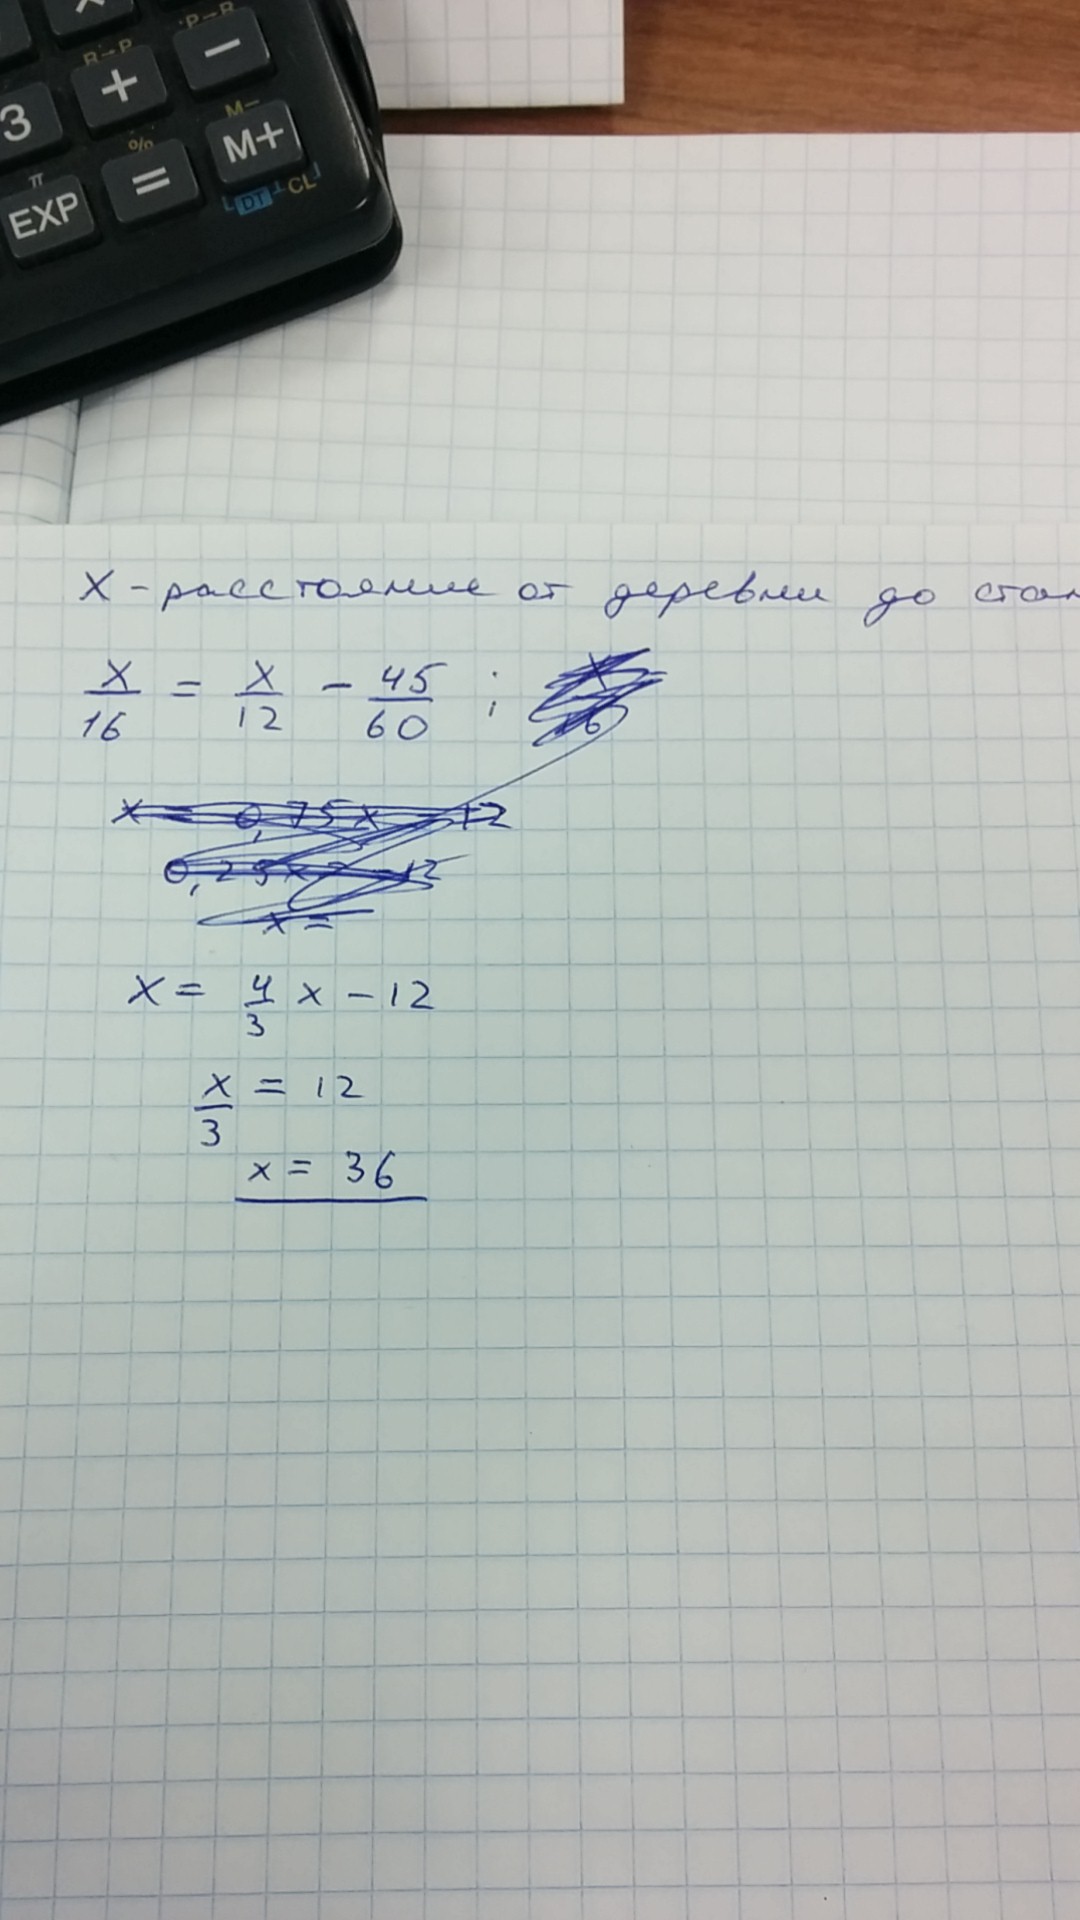 R→P P→R
3 + −
% M−
π
EXP = M+
DT CL
X - расстояние от деревни до стан
x/16 = x/12 - 45/60 ;
x = 0,75x - 12
x =
x = 4/3 x - 12
x/3 = 12
x = 36